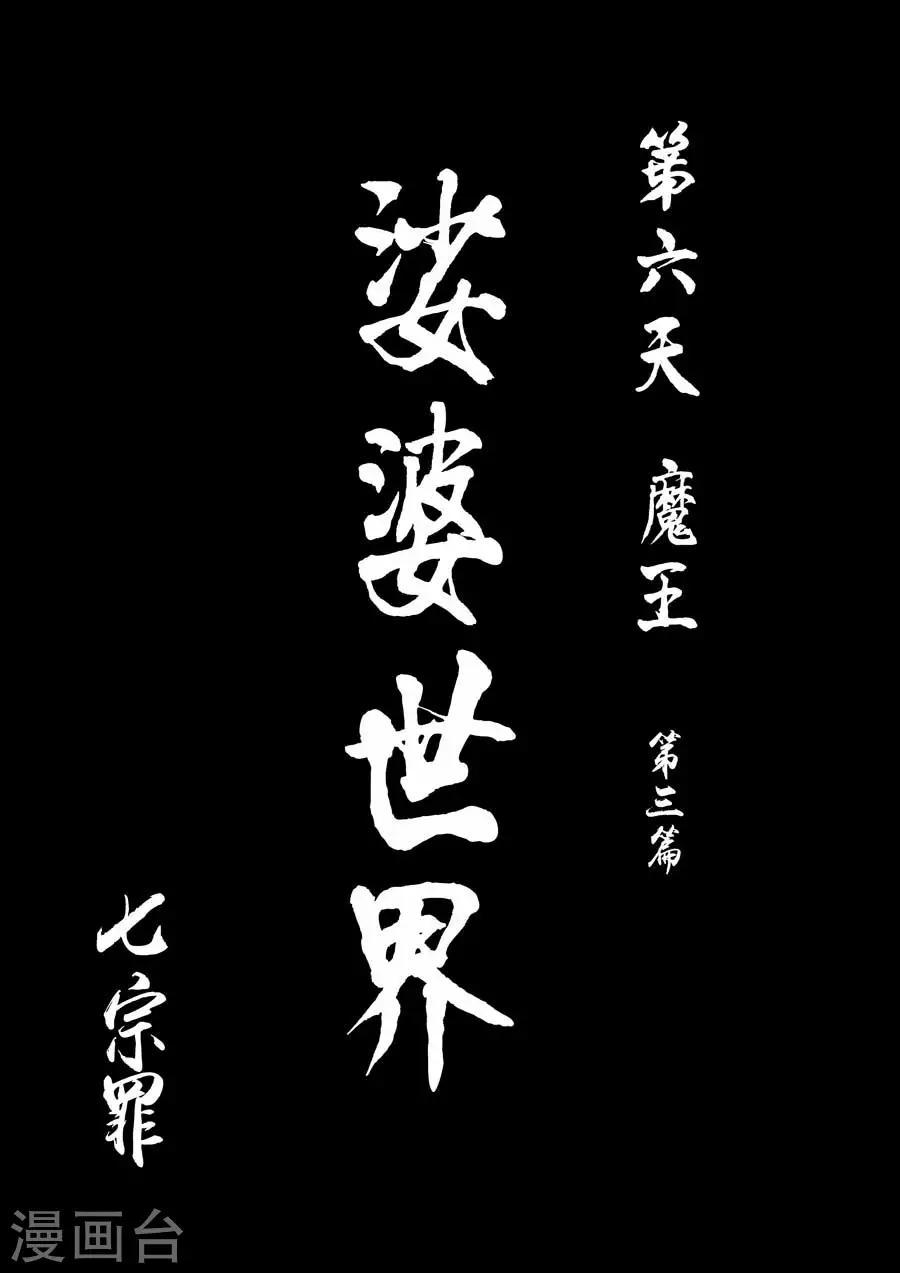 第六天 魔王 第三篇
娑婆世界
七宗罪
漫画台